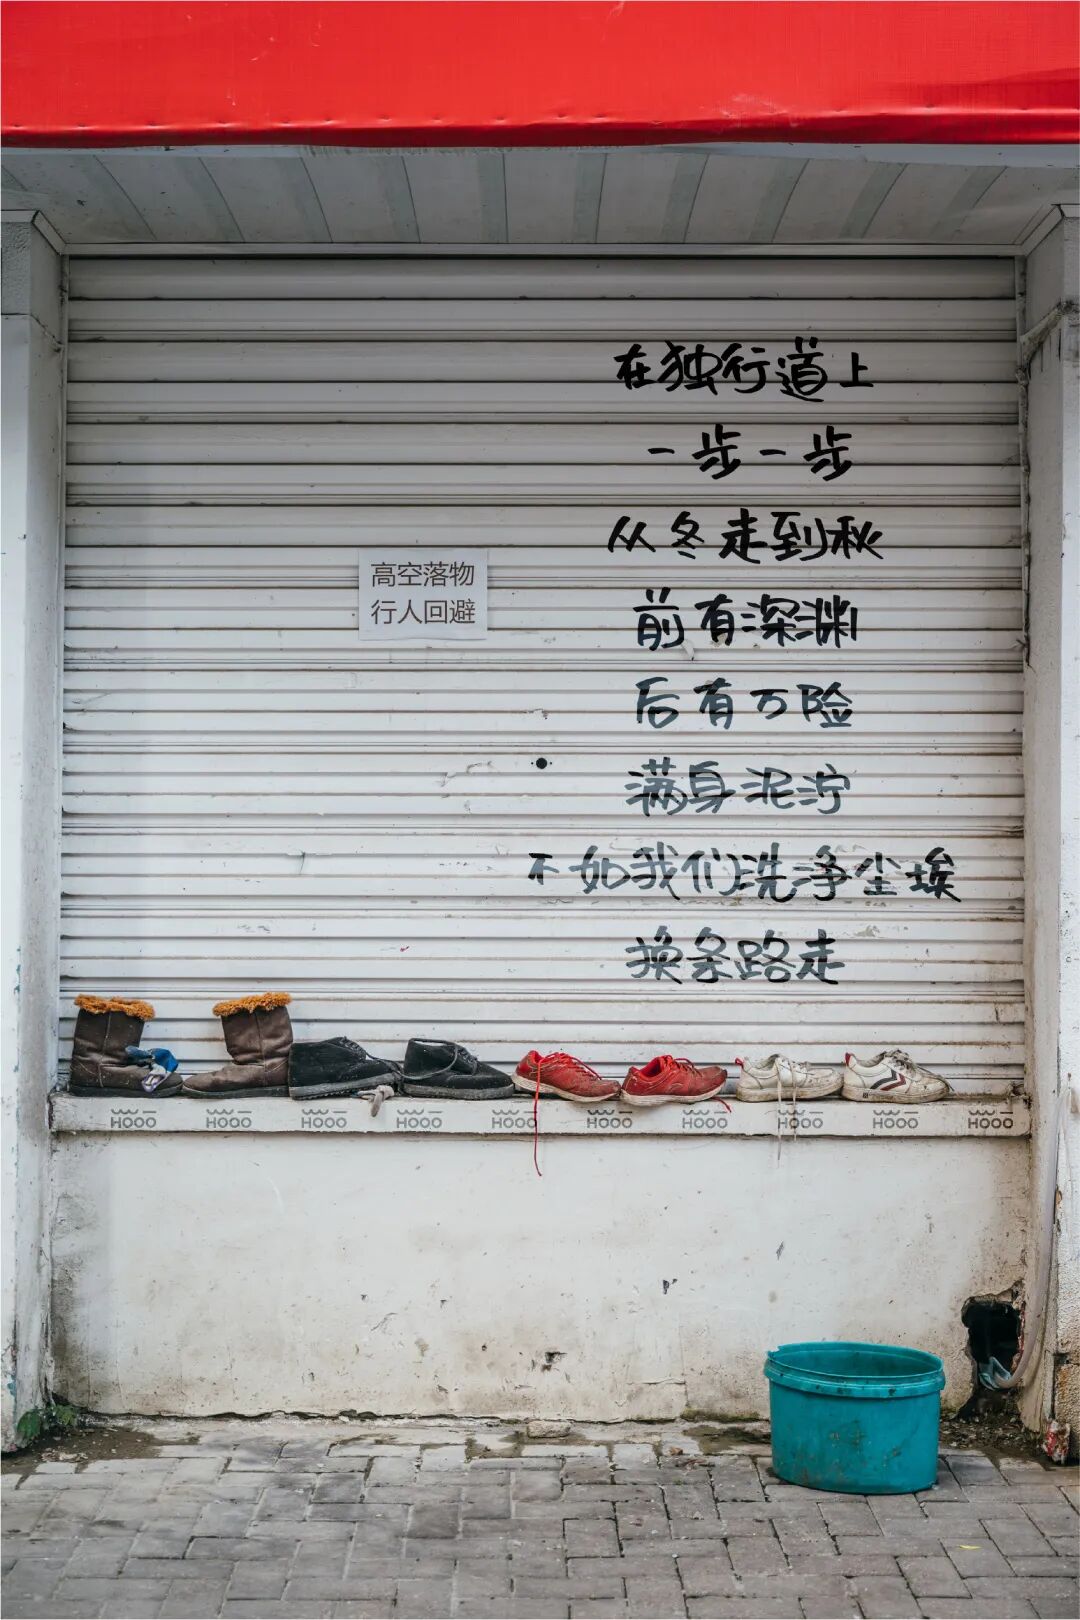 在独行道上
一步一步
从冬走到秋
前有深渊
后有万险
满身泥泞
不如我们洗净尘埃
换条路走
高空落物
行人回避
HOOO HOOO HOOO HOOO HOOO HOOO HOOO HOOO HOOO HOOO